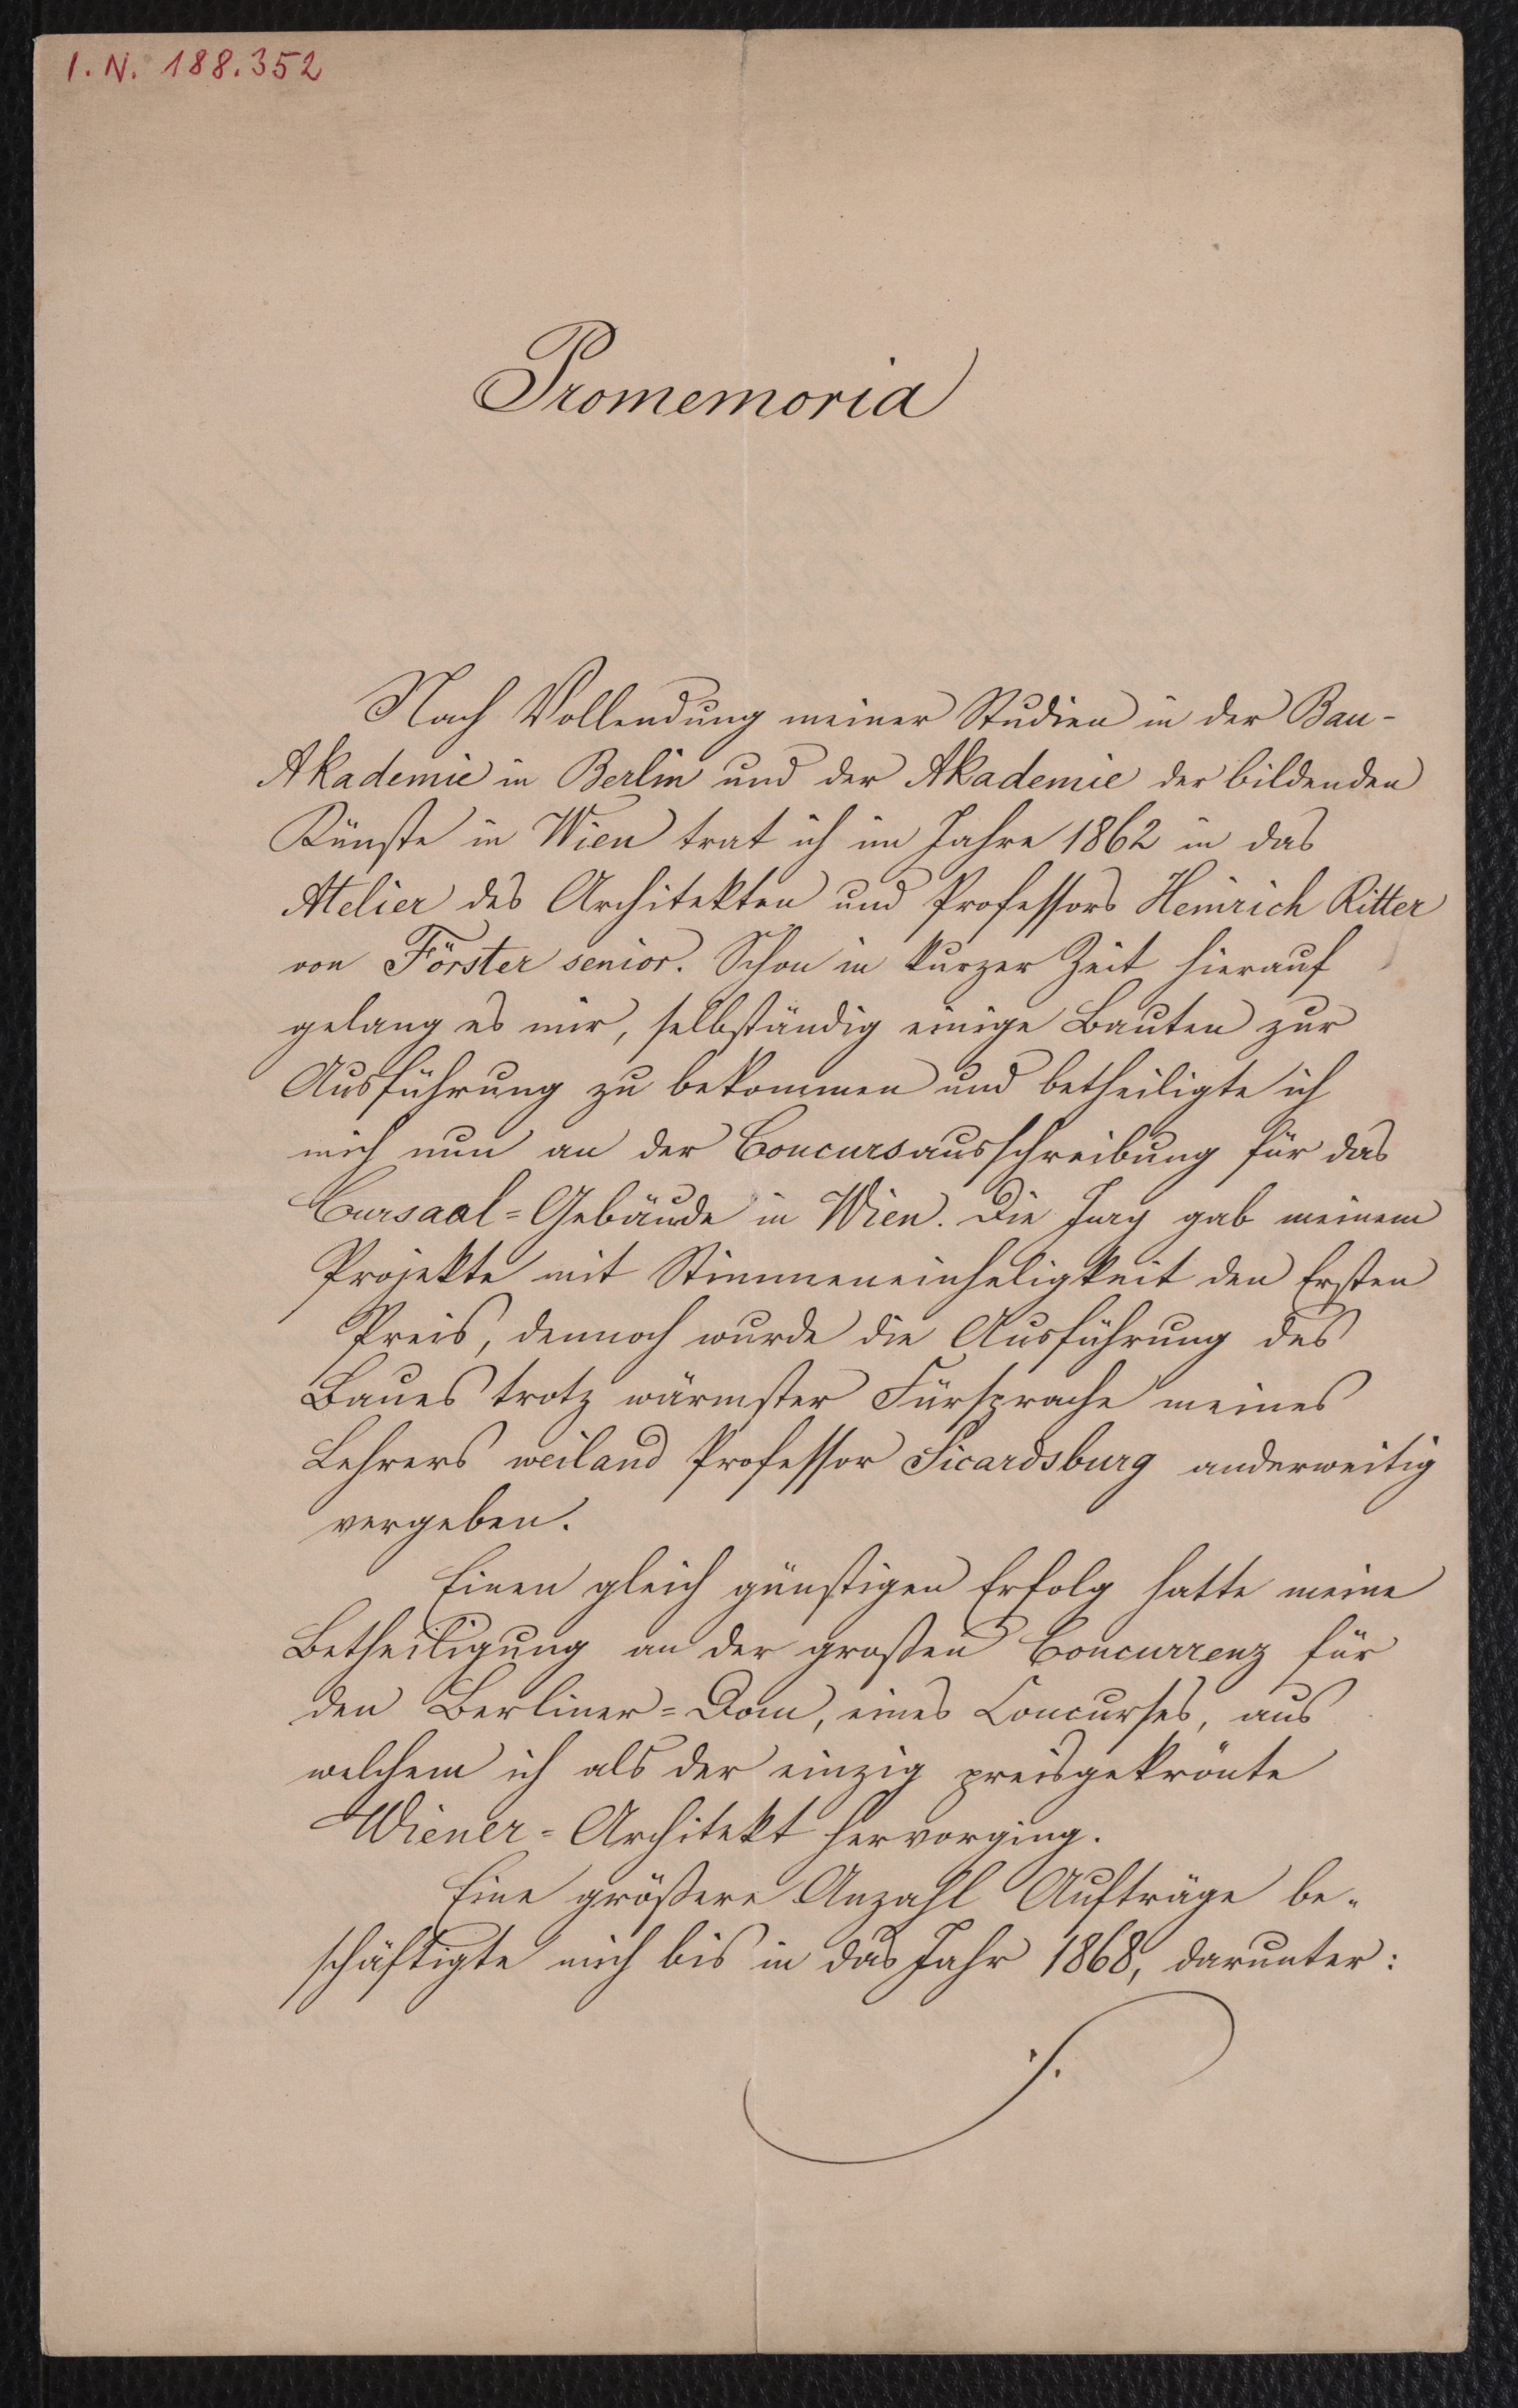 I. N. 188.352
Promemoria
Nach Vollendung meiner Studien in der Bau-
Akademie in Berlin und der Akademie der bildenden
Künste in Wien trat ich im Jahre 1862 in das
Atelier des Architekten und Professors Heinrich Ritter
von Förster senior. Schon in kurzer Zeit hierauf
gelang es mir, selbständig einige Bauten zur
Ausführung zu bekommen und betheiligte ich
mich nun an der Concursausschreibung für das
Cursaal=Gebäude in Wien. Die Jury gab meinem
Projekte mit Stimmeneinheligkeit den Ersten
Preis, dennoch wurde die Ausführung des
Baues trotz wärmster Fürsprache meines
Lehrers weiland Professor Sicardsburg anderweitig
vergeben.
Einen gleich günstigen Erfolg hatte meine
Betheiligung an der großen Concurrenz für
den Berliner=Dom, eines Concurses, aus
welchem ich als der einzig preisgekrönte
Wiener=Architekt hervorging.
Eine größere Anzahl Aufträge be-
schäftigte mich bis in das Jahr 1868, darunter:
./.